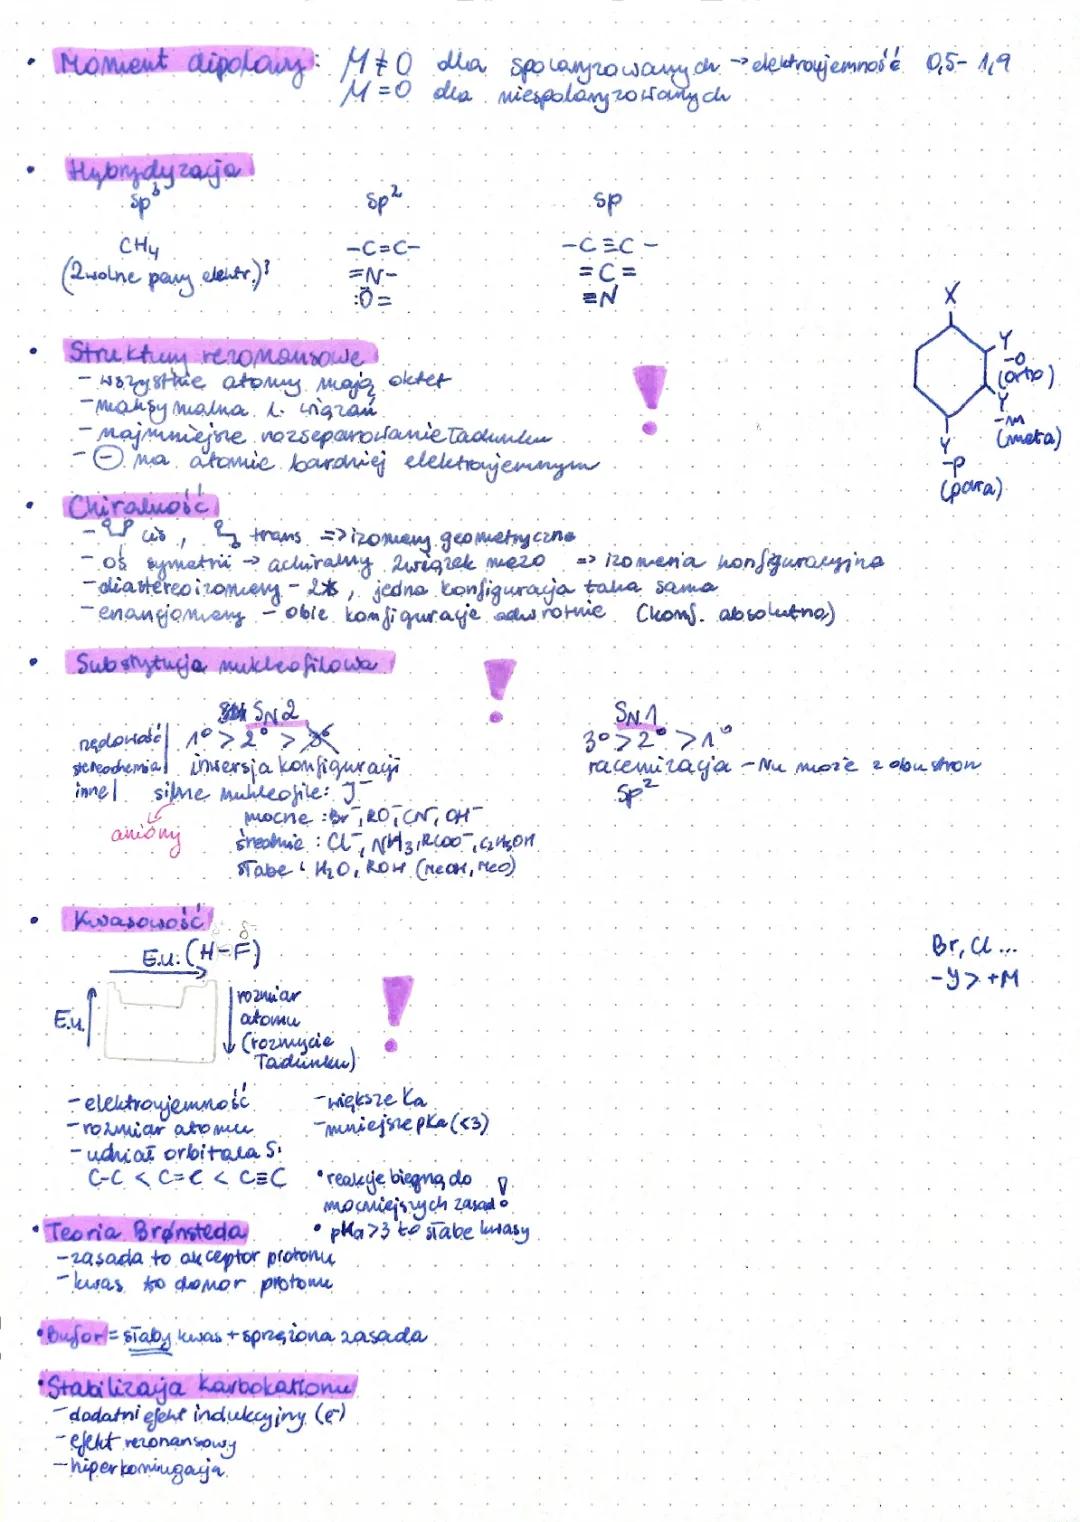 • Moment dipolowy: M ≠ 0 dla spolaryzowanych → elektroujemność 0,5 - 1,9
M = 0 dla niespolaryzowanych
• Hybrydyzacja
sp³ sp² sp
CH₄ -C=C- -C≡C-
(2 wolne pary elektr.)? =N- =C=
:Ö= ≡N
X
Y
-o
(orto)
Y
-m
(meta)
Y
-p
(para)
• Struktury rezonansowe
- wszystkie atomy mają oktet
- maksymalna l. wiązań
- najmniejsze rozseparowanie ładunku
- ⊖ na atomie bardziej elektroujemnym
• Chiralność
- cis, trans => izomery geometryczne
- oś symetrii → achiralny związek mezo => izomeria konfiguracyjna
- diastereoizomery - 2*, jedna konfiguracja taka sama
- enancjomery - obie konfiguracje odwrotnie (konf. absolutna)
• Substytucja nukleofilowa
SN2 SN1
rzędowość | 1° > 2° > 3° 3° > 2° > 1°
stereochemia | inwersja konfiguracji racemizacja - Nu może z obu stron
inne | silne nukleofile: J⁻ sp²
aniony
mocne: Br⁻, RO⁻, CN⁻, OH⁻
średnie: Cl⁻, NH₃, RCOO⁻, C₂H₅OH
słabe: H₂O, ROH (MeOH, MeO)
• Kwasowość
δ-
E.u. (H-F)
E.u.
rozmiar
atomu
(rozmycie
ładunku)
Br, Cl...
-Y > +M
- elektroujemność - większe Ka
- rozmiar atomu - mniejsze pKa (<3)
- udział orbitala S:
C-C < C=C < C≡C • reakcje biegną do
mocniejszych zasad!
• pKa>3 to słabe kwasy
• Teoria Brønsteda
- zasada to akceptor protonu
- kwas to donor protonu
• Bufor = słaby kwas + sprzężona zasada
• Stabilizacja karbokationu
- dodatni efekt indukcyjny (e⁻)
- efekt rezonansowy
- hiperkoniugacja